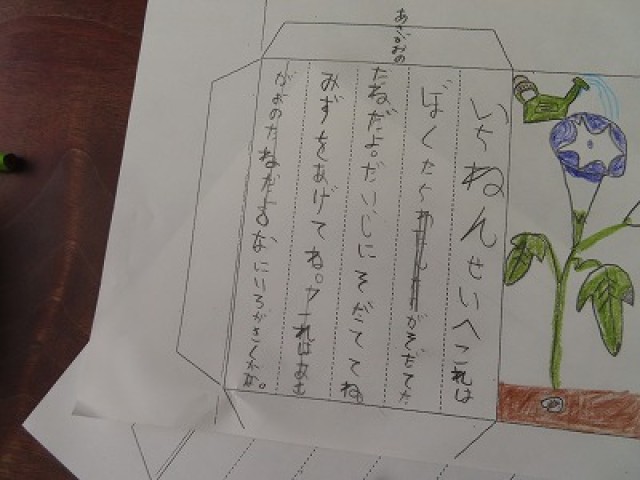 いちねんせいへこれは
ぼくたちがそだてた
あさがおの
たねだよ。だいじにそだててね
みずをあげてね。これは
がおのたねだよなにいろがさくかな。